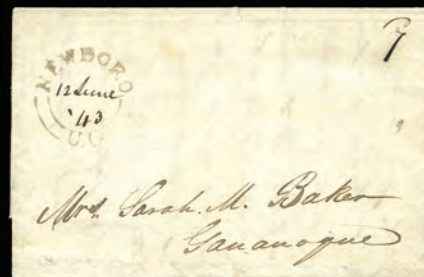 7
NEWBORO
12 June
'43
U.C
Mrs. Sarah. M. Baker
Gananoque